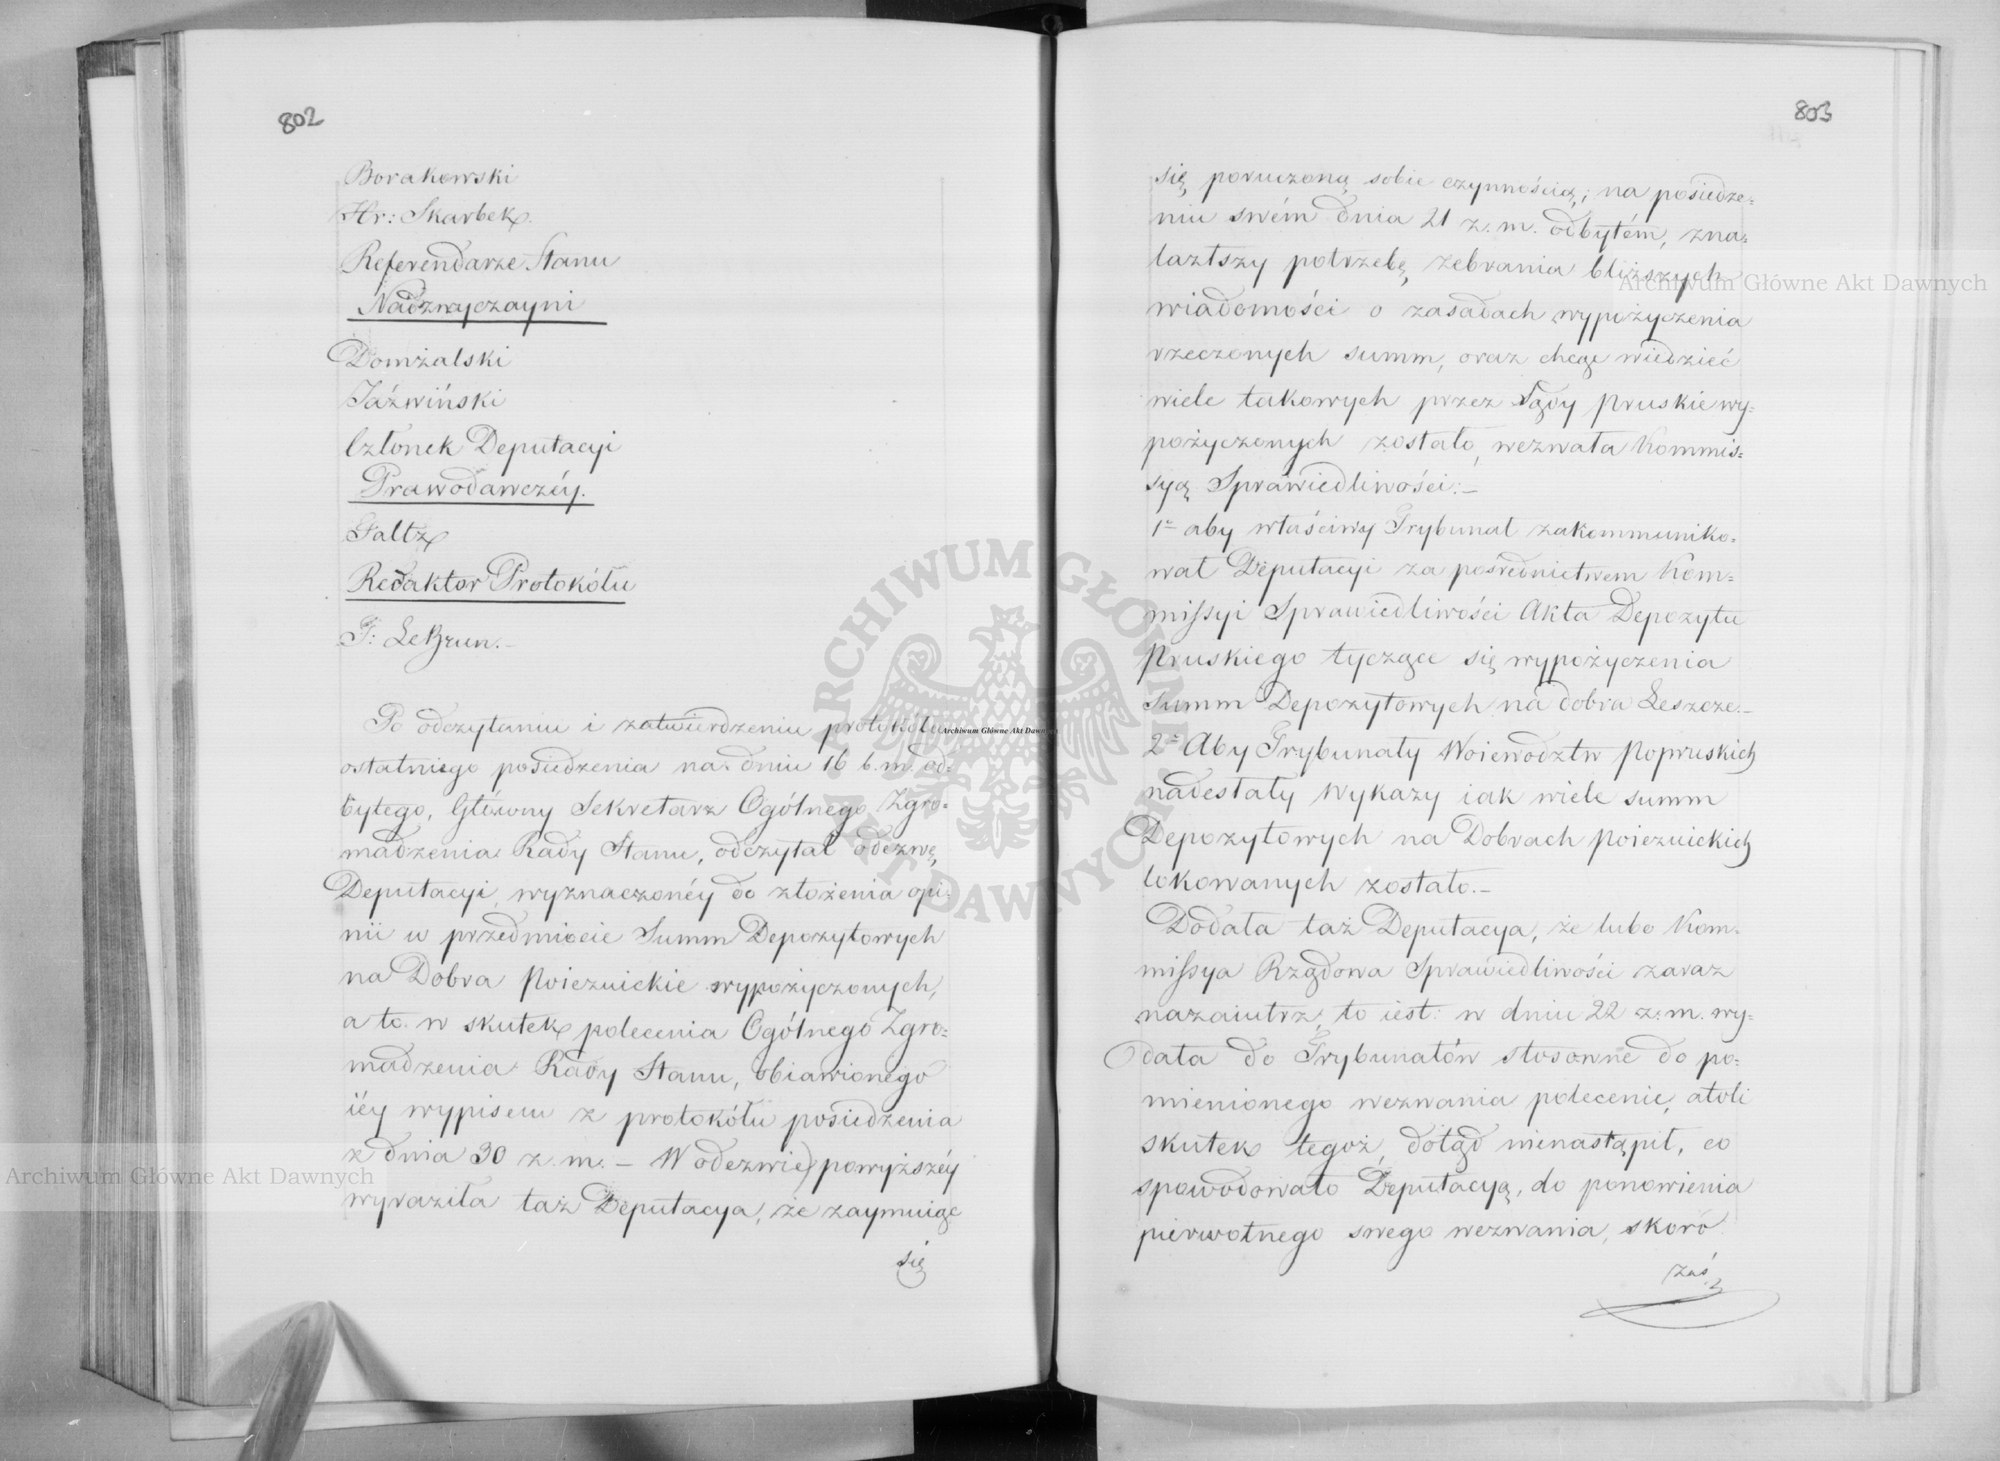 802
Borakowski
Hr: Skarbek
Referendarze Stanu
Nadzwyczayni
Domżalski
Jaźwiński
Członek Deputacyi
Prawodawczéy.
Faltz
Redaktor Protokółu
F: LeBrun.
Po odczytaniu i zatwierdzeniu protokółu
ostatniego posiedzenia na dniu 16 b. m. od=
bytego, Główny Sekretarz Ogólnego Zgro=
madzenia Rady Stanu, odczytał odezwę
Deputacyi, wyznaczonéy do złożenia opi=
nii w przedmiocie Summ Depozytowych
na Dobra Poiezuickie wypożyczonych,
a to w skutek polecenia Ogólnego Zgro=
madzenia Rady Stanu, obiawionego
iéy wypisem z protokółu posiedzenia
z dnia 30 z. m. – W odezwie powyższéy
wyraziła taż Deputacya, że zaymuiąc
się
803
się poruczoną sobie czynnością; na posiedze=
niu swém dnia 21 z. m. odbytém, zna=
lazłszy potrzebę zebrania bliższych
wiadomości o zasadach wypożyczenia
rzeczonych summ, oraz chcąc wiedzieć
wiele takowych przez Rządy Pruskie wy=
pożyczonych zostało, wezwała Kommis=
syą Sprawiedliwości: –
1º aby właściwy Trybunał zakommuniko=
wał Deputacyi za pośrednictwem Kom=
missyi Sprawiedliwości Akta Depozytu
Pruskiego tyczące się wypożyczenia
Summ Depozytowych na dobra Leszcze. –
2º Aby Trybunały Woiewodztw Popruskich
nadesłały Wykazy iak wiele summ
Depozytowych na Dobrach Poiezuickich
lokowanych zostało. –
Dodała taż Deputacya, że lubo Kom=
missya Rządowa Sprawiedliwości zaraz
nazaiutrz, to iest: w dniu 22 z. m. wy=
dała do Trybunałów stosowne do po=
mienionego wezwania polecenie, atoli
skutek tegoż, dotąd nienastąpił, co
spowodowało Deputacyą, do ponowienia
pierwotnego swego wezwania, skoro
zaś
Archiwum Główne Akt Dawnych
Archiwum Główne Akt Dawnych
Archiwum Główne Akt Dawnych
ARCHIWUM GŁÓWNE AKT DAWNYCH